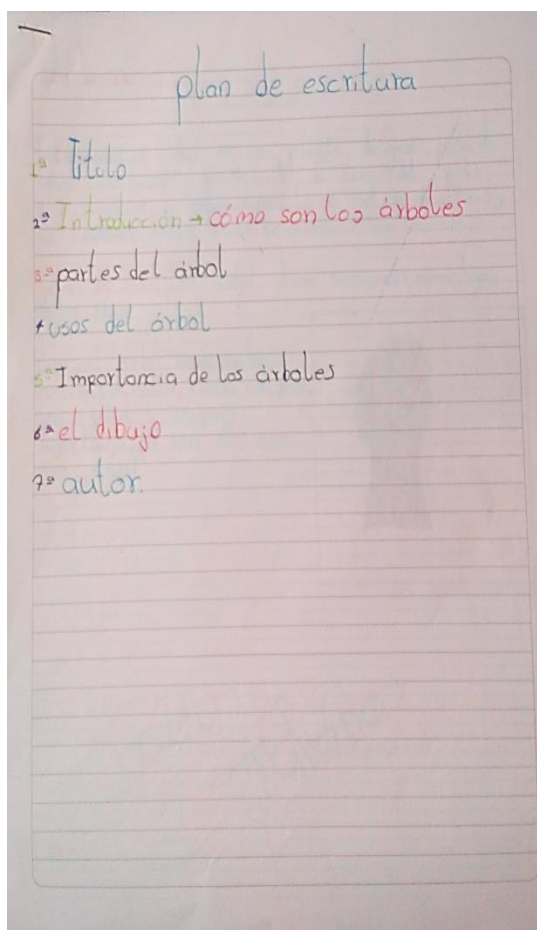 plan de escritura
1º Titolo
2º Introducción → cómo son los árboles
3º partes del árbol
4 usos del árbol
5º Importancia de los árboles
6º el dibujo
7º autor.